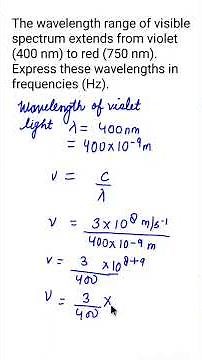 The wavelength range of visible
spectrum extends from violet
(400 nm) to red (750 nm).
Express these wavelengths in
frequencies (Hz).
Wavelength of violet
light λ = 400nm
= 400×10⁻⁹m
ν = c/λ
ν = 3×10⁸ m/s⁻¹ / 400×10⁻⁹ m
ν = 3/400 ×10⁸⁺⁹
ν = 3/400 ×